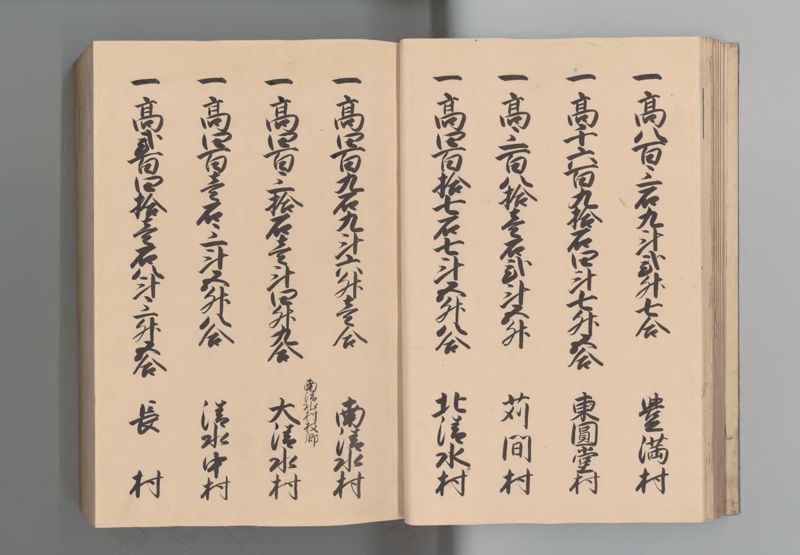 一 高八百三石九斗弐升七合 豊満村
一 高千六百九拾石四斗七升五合 東圓堂村
一 高三百八拾壱石弐斗五升 苅間村
一 高四百拾七石七斗五升八合 北清水村
一 高四百九石九斗六升壱合 南清水村
南清水村枝郷
一 高四百三拾石壱斗四升九合 大清水村
一 高四百壱石三斗五升八合 清水中村
一 高弐百四拾壱石八斗三升五合 長村